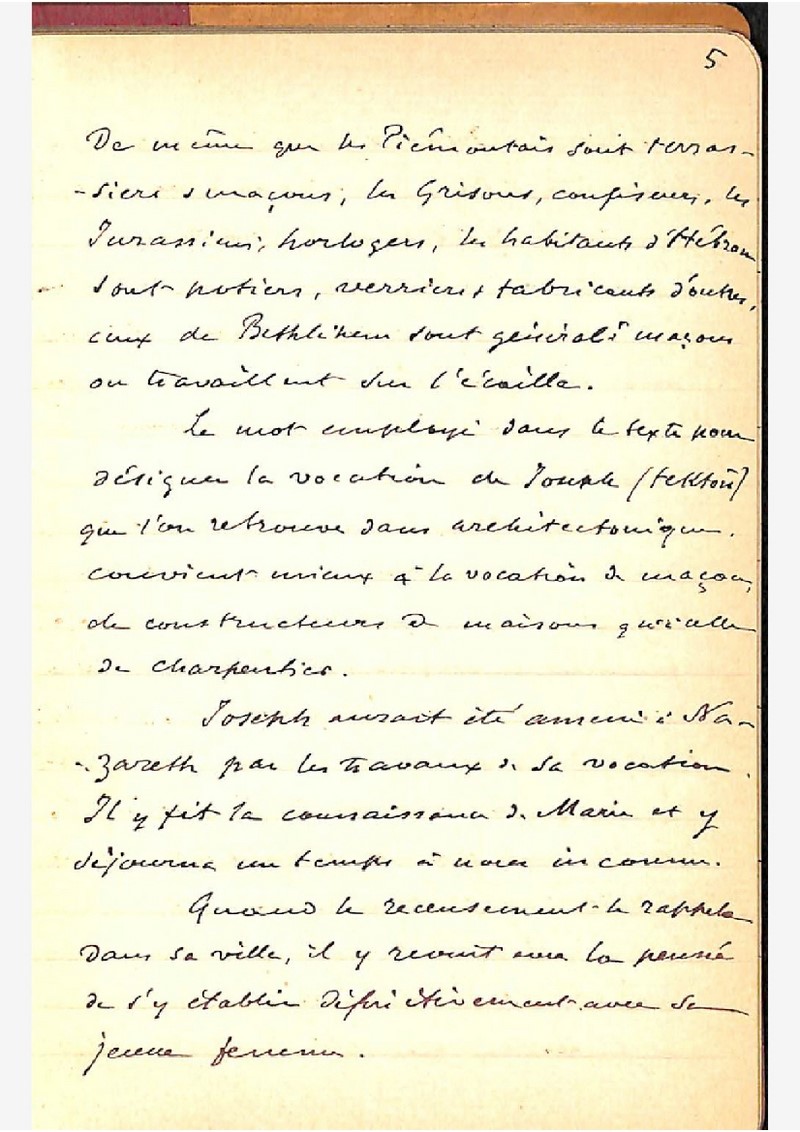 5
De même que les Piémontais sont terras-
-siers & maçons, les Grisons, confiseurs, les
Jurassiens, horlogers, les habitants d'Hébron
sont potiers, verriers & fabricants d'outres,
ceux de Bethléhem sont générالt maçons
ou travaillent sur l'écaille.
Le mot employé dans le texte pour
désigner la vocation de Joseph (tektôn)
que l'on retrouve dans architectonique.
convient mieux à la vocation de maçon,
de constructeurs de maisons qu'à celle
de charpentier.
Joseph aurait été amené à Na-
-zareth par les travaux de sa vocation.
Il y fit la connaissance de Marie et y
séjourna un temps à nous inconnu.
Quand le recensement le rappela
dans sa ville, il y revint avec la pensée
de s'y établir définitivement avec sa
jeune femme.